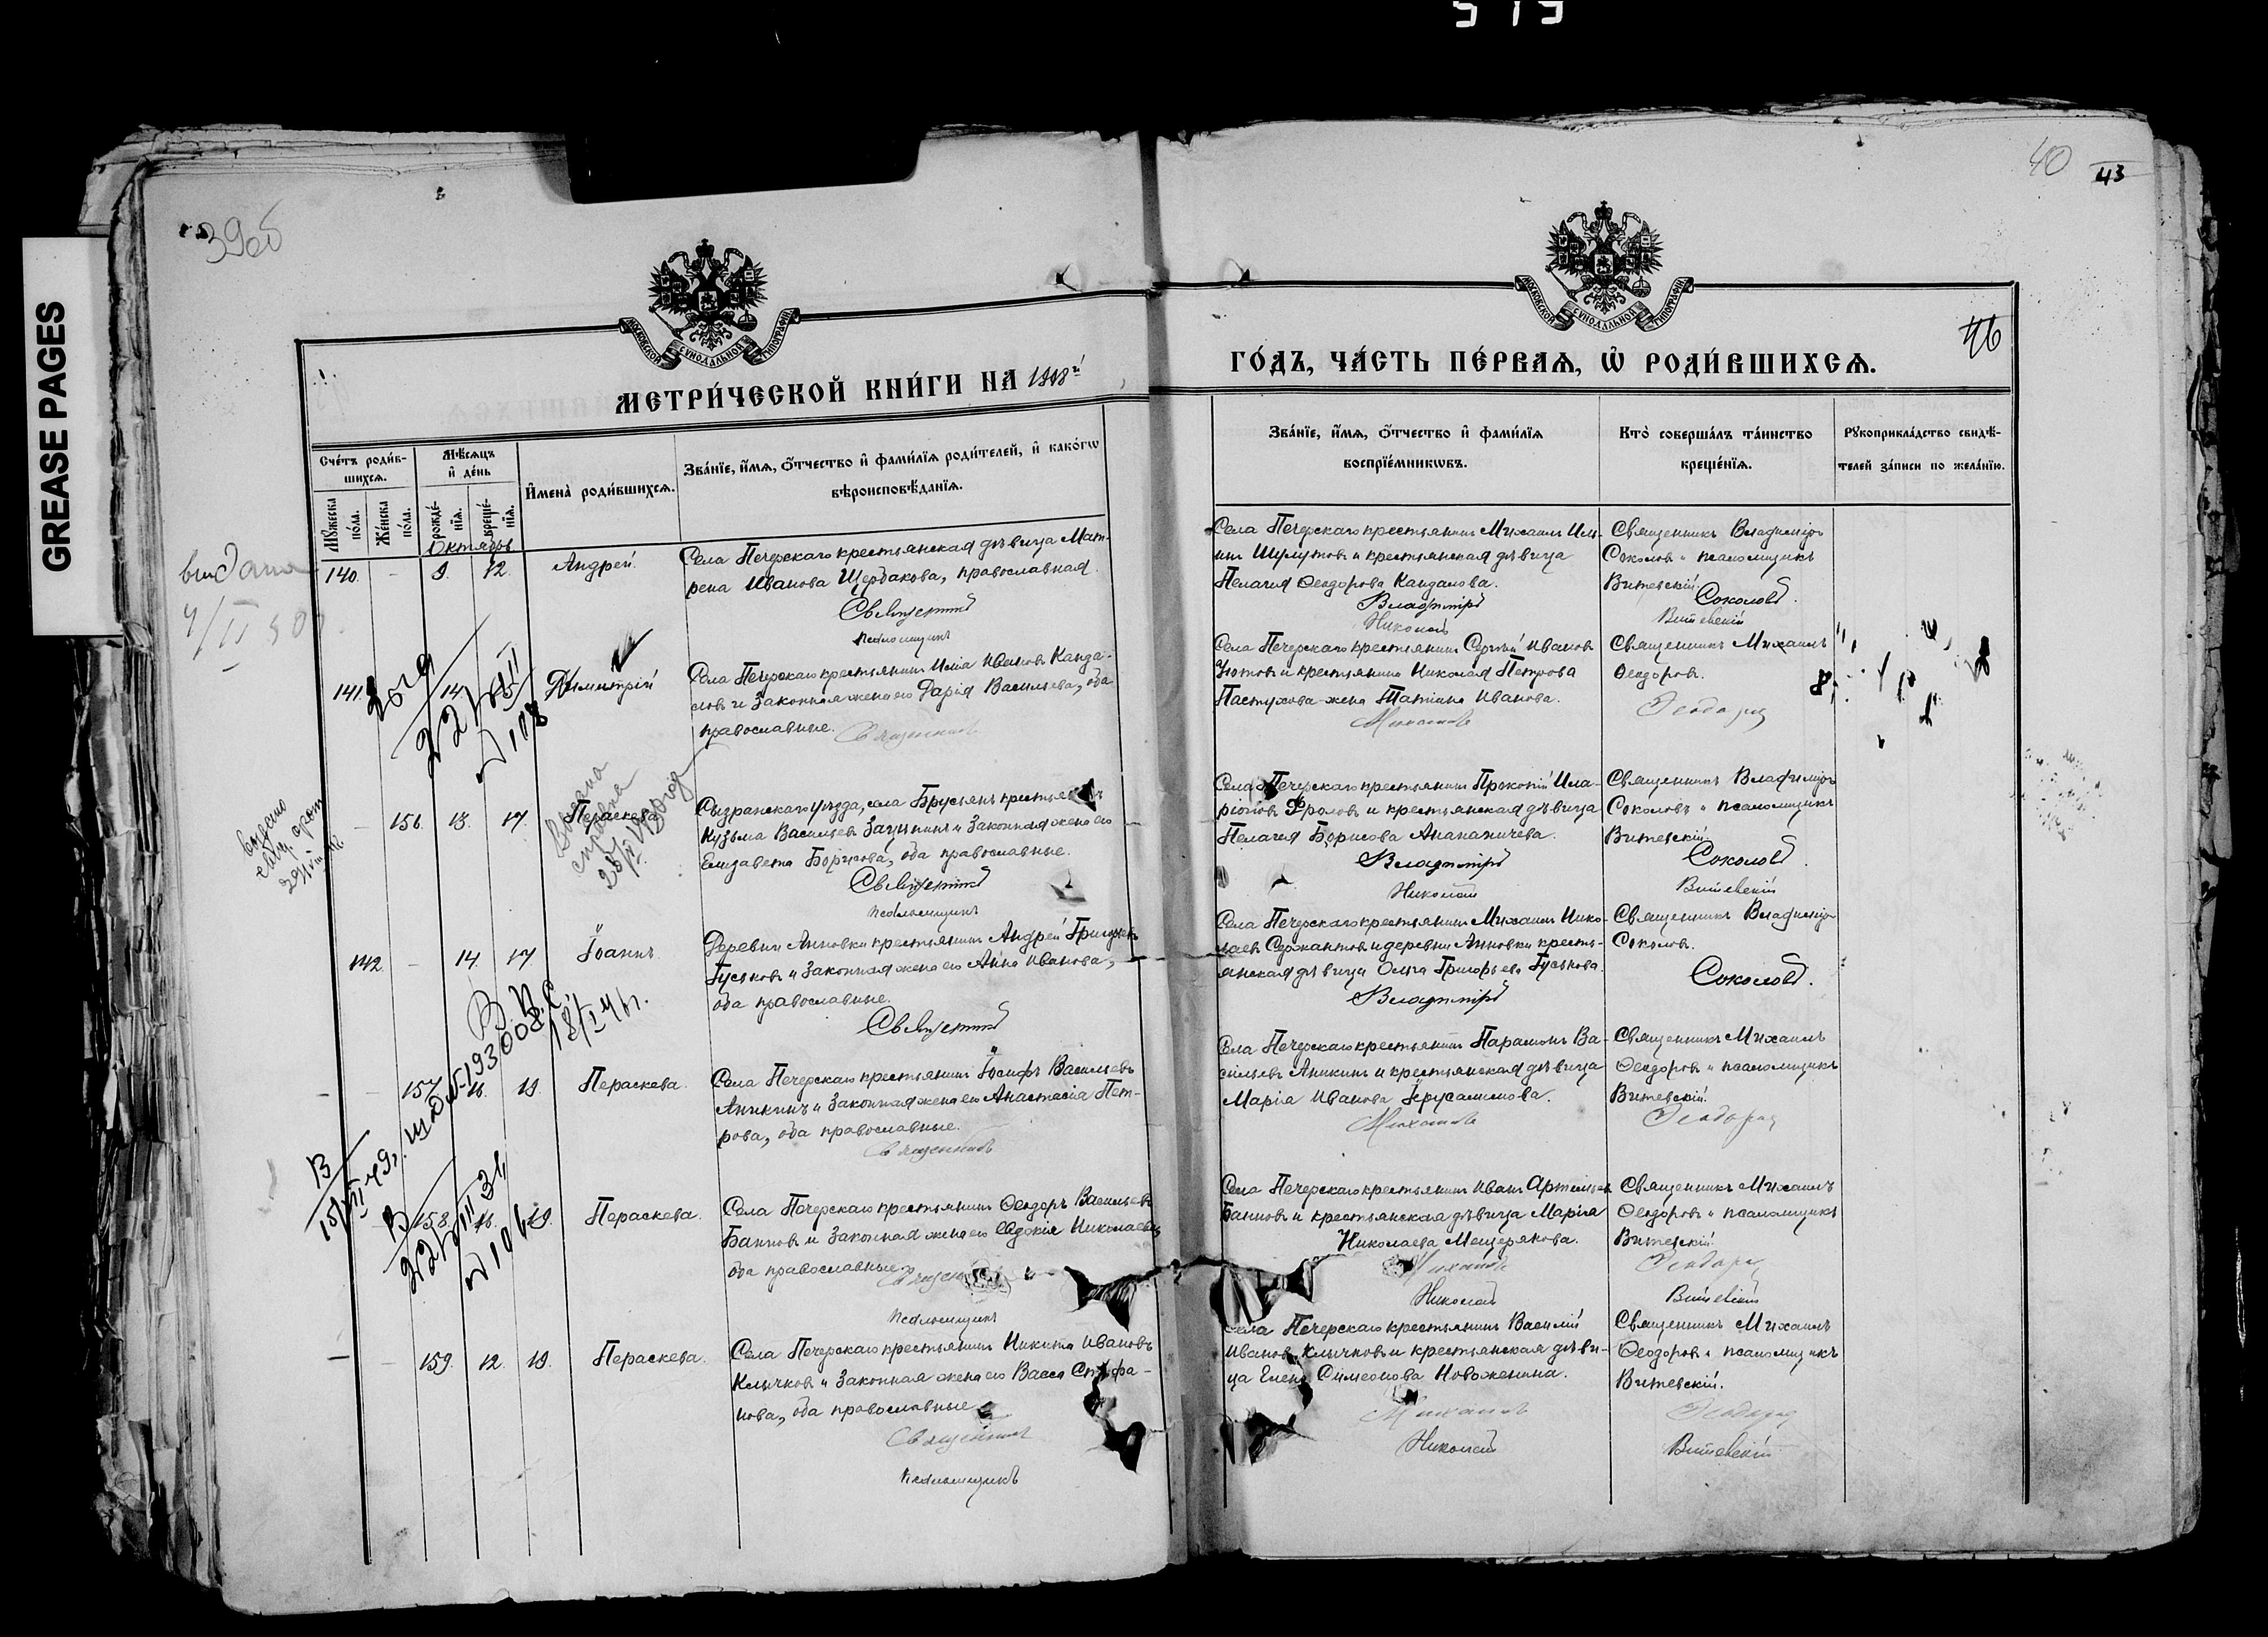 519
GREASE PAGES
39об
40
43
46
МОСКОВСКОЙ СѴНОДАЛЬНОЙ ТИПОГРАФІИ
МОСКОВСКОЙ СѴНОДАЛЬНОЙ ТИПОГРАФІИ
МЕТРИ́ЧЕСКОЙ КНИ́ГИ НА 1908й
ГО́ДЪ, ЧА́СТЬ ПЕ́РВАЯ, Ѿ РОДИ́ВШИХСЯ.
Сче́тъ роди́в-
шихся.
Мѣ́сяцъ
и де́нь
Имена̀ роди́вшихся.
Зва́нїе, и́мя, о́тчество и фами́лїя роди́телей, и како́гѡ
вѣроисповѣ́данїя.
Му́жеска по́ла.
Же́нска по́ла.
рожде́-
нїя.
креще́-
нїя.
Зва́нїе, и́мя, о́тчество и фами́лїя
воспрїе́мникѡвъ.
Кто̀ соверша́лъ та́инство
креще́нїя.
Рукоприкла́дство свидѣ́-
телей за́писи по жела́нїю.
Октябрь
выдана
140. - 9. 12. Андрей.
Села Печерскаго крестьянская дѣвица Мат-
рена Иванова Щербакова, православная.
Священникъ
псаломщикъ
Села Печерскаго крестьянинъ Михаилъ Иль-
инъ и крестьянская дѣвица
Пелагия Ѳеодорова Кандалова.
Владимiръ
Николай
Священникъ Владимiръ
Соколовъ и псаломщикъ
Витевскiй.
Соколовъ.
Витевскiй
141. 14. Димитрiй
Села Печерскаго крестьянинъ Илiа Ивановъ Канда-
ловъ и законная жена его Дарiя Васильева, оба
православные.
Священникъ
Села Печерскаго крестьянинъ Сергiй Ивановъ
Утовъ и крестьянина Николая Петрова
Пастухова жена Татiана Иванова.
Михаилъ
Священникъ Михаилъ
Ѳеодоровъ.
Ѳеодоровъ
- 156. 13. 17. Параскева.
Сызранскаго уѣзда, села Брусянъ крестьянинъ
Кузьма Васильевъ и законная жена его
Елизавета Борисова, оба православные.
Священникъ
псаломщикъ
Села Печерскаго крестьянинъ Прокопiй Ила-
рiоновъ Фроловъ и крестьянская дѣвица
Пелагия Борисова
Владимiръ
Николай
Священникъ Владимiръ
Соколовъ и псаломщикъ
Витевскiй.
Соколовъ.
Витевскiй
142. - 14. 17 Iоаннъ.
Деревни Анновки крестьянинъ Андрей Григорьевъ
Гуськовъ и законная жена его Анна Иванова,
оба православные.
Священникъ
Села Печерскаго крестьянинъ Михаилъ Нико-
лаевъ Сержантовъ и деревни Анновки кресть-
янская дѣвица Ольга Григорьева Гуськова.
Владимiръ
Священникъ Владимiръ
Соколовъ.
Соколовъ.
- 157. 16. 19. Пераскева.
Села Печерскаго крестьянинъ Iосифъ Васильевъ
Аникинъ и законная жена его Анастасiя Пет-
рова, оба православные.
Священникъ
Села Печерскаго крестьянинъ Парамонъ Ва-
сильевъ Аникинъ и крестьянская дѣвица
Марiя Иванова Iерусалимова.
Михаилъ
Священникъ Михаилъ
Ѳеодоровъ и псаломщикъ
Витевскiй.
Ѳеодоровъ
158. 16. 19. Пераскева.
Села Печерскаго крестьянинъ Ѳеодоръ Васильевъ
Банновъ и законная жена его Евдокiя Николаева,
оба православные.
Священникъ
псаломщикъ
Села Печерскаго крестьянинъ Иванъ Артемьевъ
Банновъ и крестьянская дѣвица Марiя
Николаева Мещерякова.
Михаилъ
Николай
Священникъ Михаилъ
Ѳеодоровъ и псаломщикъ
Витевскiй.
Ѳеодоровъ
Витевскiй
- 159. 12. 19. Пераскева.
Села Печерскаго крестьянинъ Никита Ивановъ
Клычковъ и законная жена его Васса Стефа-
нова, оба православные.
Священникъ
псаломщикъ
Села Печерскаго крестьянинъ Василiй
Ивановъ Клычковъ и крестьянская дѣви-
ца Елена Симеонова Новоженина.
Михаилъ
Николай
Священникъ Михаилъ
Ѳеодоровъ и псаломщикъ
Витевскiй.
Ѳеодоровъ
Витевскiй